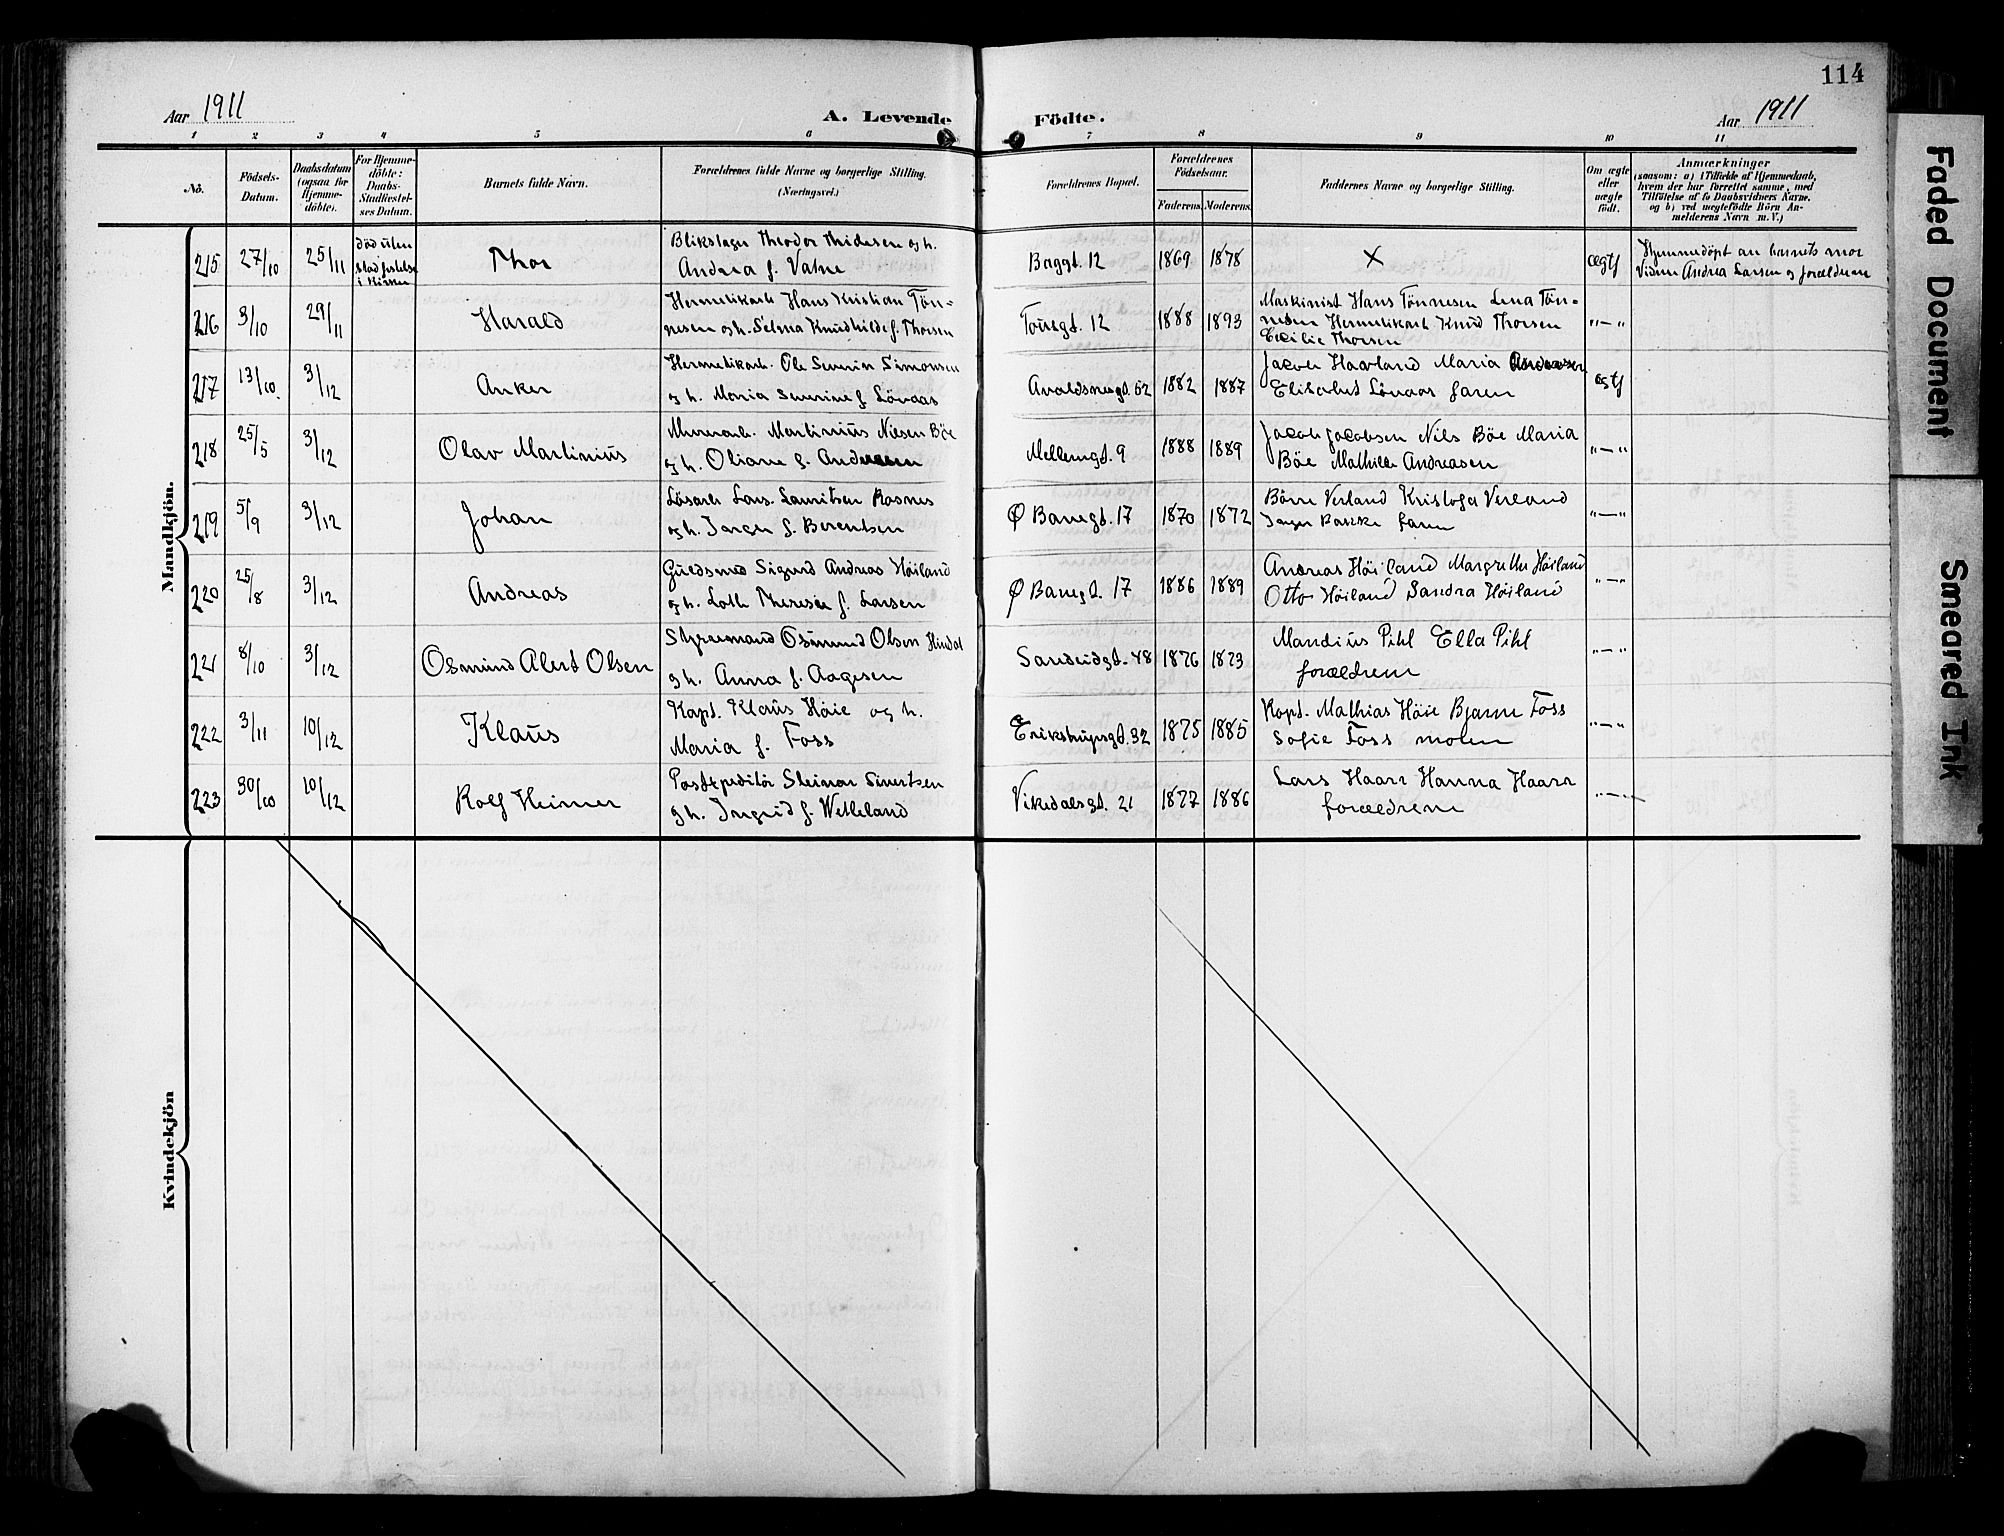 114
Aar 1911
A. Levende Födte.
Aar 1911
1 2 3 4 5 6 7 8 9 10 11
No.
Födsels-
Datum.
Daabsdatum
(ogsaa for
Hjemme-
döbte).
For Hjemme-
döbte:
Daabs-
Stadfæstel-
ses Datum.
Barnets fulde Navn.
Forældrenes fulde Navne og borgerlige Stilling.
(Næringsvei.)
Forældrenes Bopæl.
Forældrenes
Födselsaar.
Faderens. Moderens.
Faddernes Navne og borgerlige Stilling.
Om ægte
eller
uægte
født.
Anmærkninger
(saasom: a) i Tilfælde af Hjemmedaab,
hvem der har forrettet samme, med
Tilföielse af to Daabsvidners Navne,
og b) ved uægtefödte Börn An-
melderens Navn m. V.)
Mandkjön.
215 27/10 25/11
död uten
stadfestelse
i Kirken
Thor
Blikslager Theodor Thidesen og h.
Andrea f. Vatne
Baggt. 12 1869 1878 X ægtf
Hjemmedöpt av barnets mor
Vidner Andrea Larsen og forældrene
216 3/10 29/11 Harald
Hermetikarb Hans Kristian Tön-
nesen og h. Selma Knudhilde f. Thorsen
Tousgt. 12 1888 1893
Maskinist Hans Tönnesen Lena Tön-
nesen Hermetikarb Knud Thorsen
Cecilie Thorsen
"—"
217 13/10. 3/12 Anker
Hermetikarb. Ole Severin Simonsen
og h. Maria Severine f. Lönaas
Avaldsnesgt. 62 1882 1887
Jacob Haavland Maria Andersen
Elisabet Lönaas faren
ægtf
218 25/5 3/12 Olav Martinius
Murerarb. Martinius Nielsen Böe
og h. Oliane f. Andersen
Mellemgt. 9 1888 1889
Jacob Jacobsen Nils Böe Maria
Böe Mathilde Andreasen
"—"
219 5/9 3/12 Johan
Lösarb Lars. Lauritsen Rosnes
og h. Inger f. Berentsen
Ø Banegt. 17 1870 1872
Börre Verland Kristofa Verland
Inger faren
"—"
220 25/8 3/12 Andreas
Guldsmed Sigurd Andreas Höiland
og h. Lotte Therese f. Larsen
Ø Banegt. 17 1886 1889
Andreas Höiland Margrethe Höiland
Otto Höiland Sandra Höiland
"—"
221 8/10 3/12 Osmund Alert Olsen
Styrmand Osmund Olsen
og h. Anna f. Aagesen
Sandeidgt. 48 1876 1873
Mandius Pihl Ella Pihl
forældrene
"—"
222 3/11 10/12 Klaus
Kapt. Klaus Höie og h.
Maria f. Foss
Erikstrupsgt. 32 1875 1885
Kapt. Mathias Höie Bjarne Foss
Sofie Foss moren
"—"
223 30/10 10/12 Rolf Heimer
Postexpeditör Steinar Sivertsen
og h. Ingrid f. Wetteland
Vikedalsgt. 21 1877 1886
Lars Haarr Hanna Haarr
forældrene
"—"
Kvindekjön
Faded Document
Smeared Ink